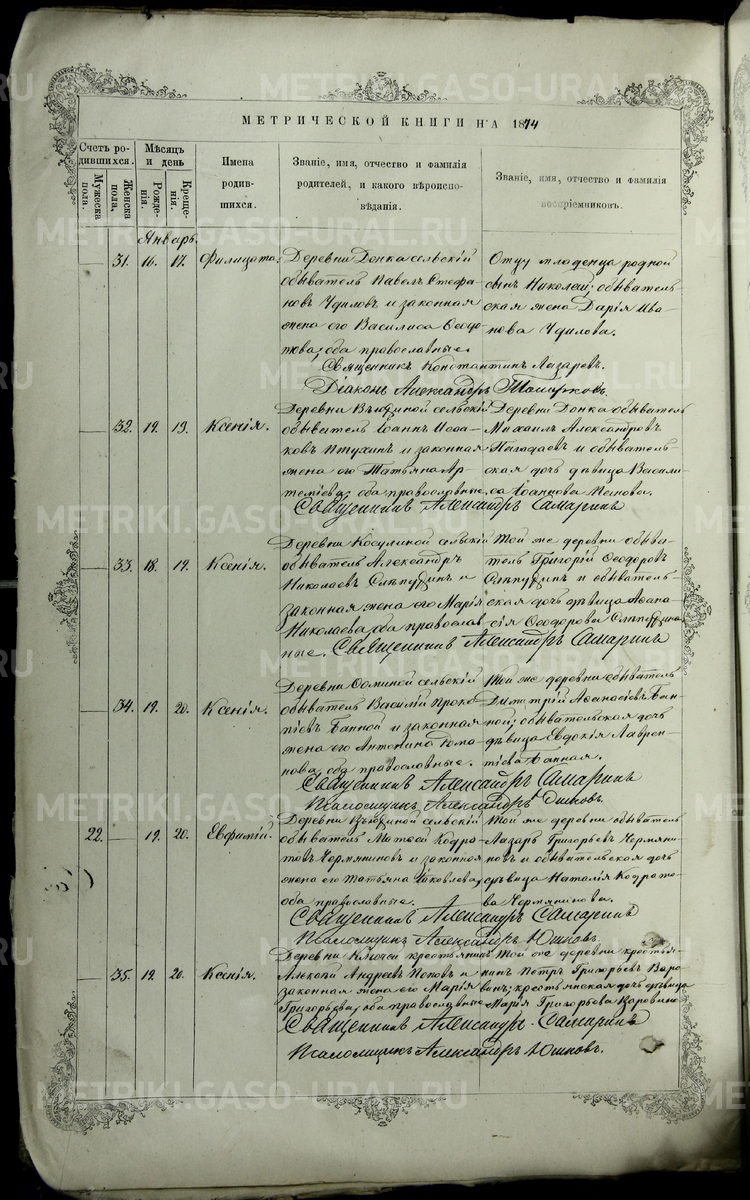 МЕТРИЧЕСКОЙ КНИГИ НА 1874
Счетъ родившихся.
Мѣсяцъ и день
Имена родившихся.
Званіе, имя, отчество и фамилія родителей, и какого вѣроисповѣданія.
Званіе, имя, отчество и фамилія воспріемниковъ.
Мужеска пола.
Женска пола.
Рожденія.
Крещенія.
Январь.
31. 16. 17. Филицата.
Деревни Донка сельскій
обыватель Павелъ Стефановъ
и законная
жена его Василиса Ѳеодотова,
оба православные.
Отцу младенца родной
сынъ Николай; обывательская
жена Дарія Иванова
Священникъ Константинъ Лазаревъ.
Діаконъ Александръ
32. 19. 19. Ксенія.
Деревни сельскій
обыватель Іоаннъ Исааковъ
Птухинъ и законная
жена его Татьяна Артеміева,
оба православные.
Деревни Донка обыватель
Михаилъ Александровъ
и обывательская
дочь дѣвица Василиса
Іоаннова
Священникъ Александръ Самаринъ
33. 18. 19. Ксенія.
Деревни Косулиной сельскій
обыватель Александръ
Николаевъ и
законная жена его Марія
Николаева, оба православные.
Той же деревни обыватель
Григорій Ѳеодоровъ
и обывательская
дочь дѣвица
Ѳеодорова
Священникъ Александръ Самаринъ
34. 19. 20. Ксенія.
Деревни сельскій
обыватель Василій Прокопіевъ
Банной и законная
жена его Антонина Романова,
оба православные.
Той же деревни обыватель
Димитрій Аѳанасіевъ Банной;
обывательская дочь
дѣвица Евдокія Лаврентіева
Банная.
Священникъ Александръ Самаринъ
Псаломщикъ Александръ Юшковъ.
22. 19. 20. Евфимій.
Деревни сельскій
обыватель Матѳей Кодратовъ
Чермяниновъ и законная
жена его Татьяна Іаковлева,
оба православные.
Той же деревни обыватель
Лазарь Григорьевъ Чермяниновъ
и обывательская дочь
дѣвица Наталія Кодратова
Чермянинова.
Священникъ Александръ Самаринъ
Псаломщикъ Александръ Юшковъ.
35. 19. 20. Ксенія.
Деревни Ключей крестьянинъ
Андреевъ Поповъ и
законная жена его Марія
Григорьева, оба православные
Той же деревни крестьянинъ
Петръ Григорьевъ
крестьянская дочь дѣвица
Марія Григорьева
Священникъ Александръ Самаринъ
Псаломщикъ Александръ Юшковъ.
METRIKI.GASO-URAL.RU